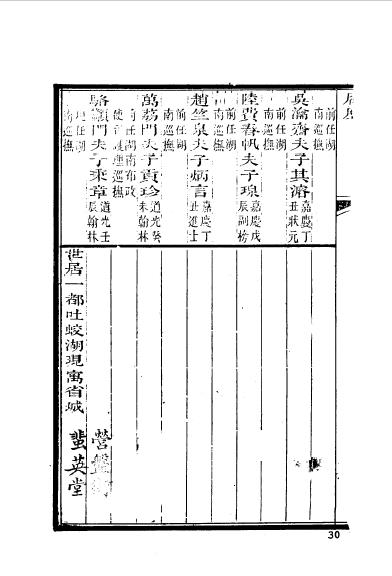 前任湖
南巡撫
吳瀹齋夫子其濬嘉慶丁丑狀元
前任湖
南巡撫
陸費春帆夫子瑔嘉慶戊辰副榜
前任湖
南巡撫
趙竺泉夫子炳言嘉慶丁丑進士
前任湖
南巡撫
萬荔門夫子貢珍道光癸未翰林
前任湖南布政
使司護理巡撫
駱籲門夫子秉章道光壬辰翰林
現任湖
南巡撫
世居一都吐蛟湖現寓省城
營盤街
蜚英堂
30